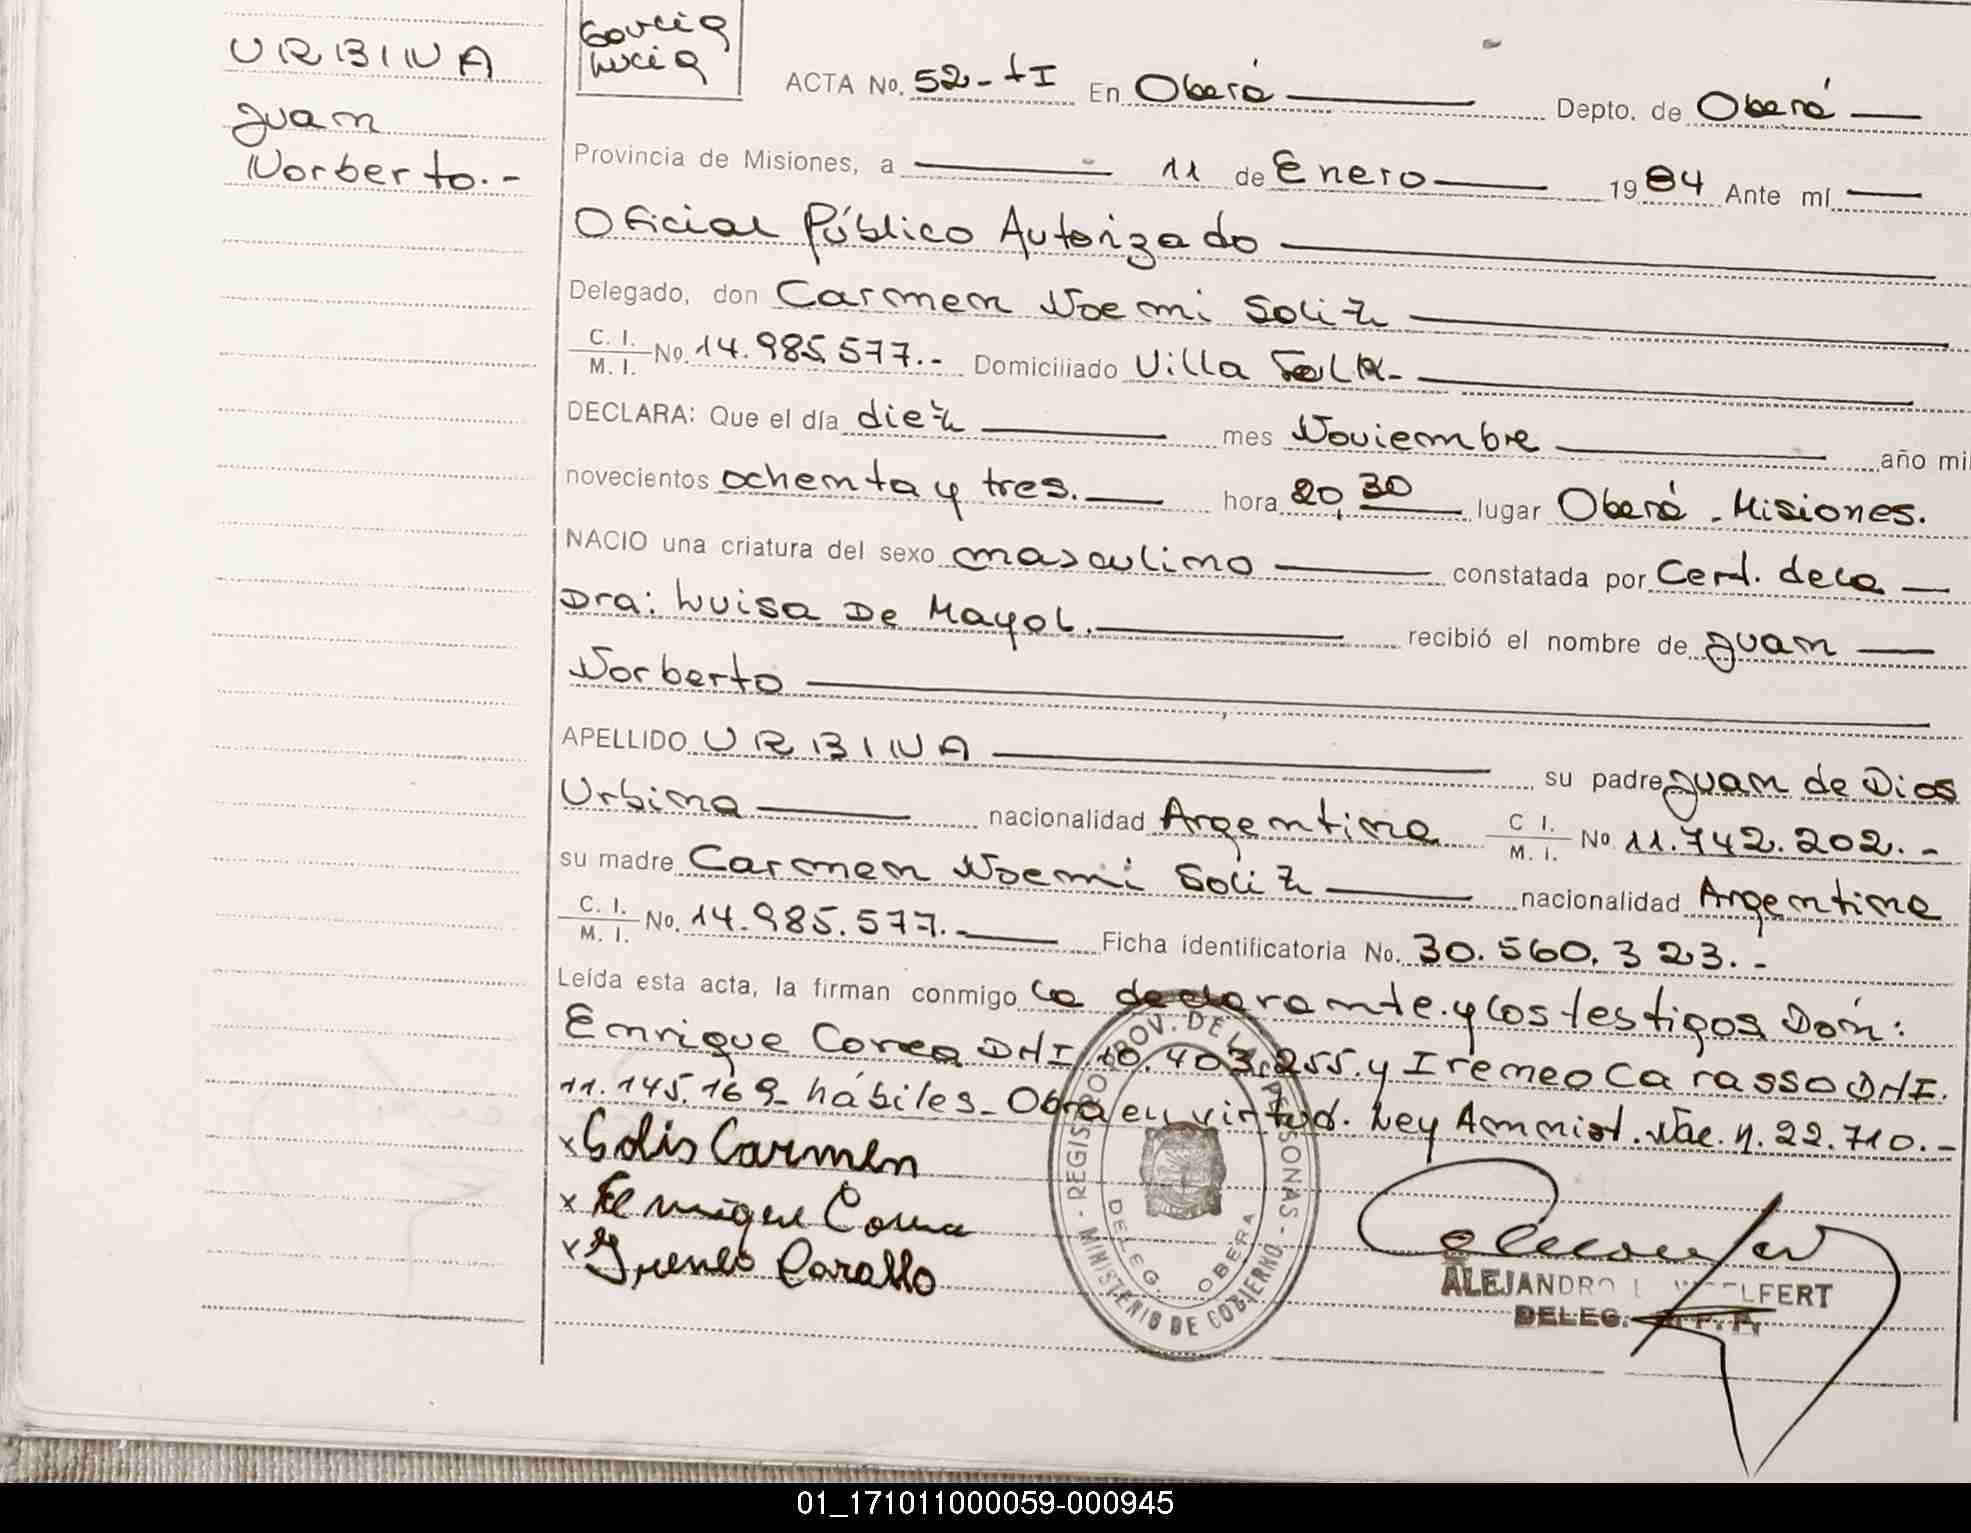 URBINA
Juan
Norberto.-
García
Lucía
ACTA No. 52-tI En Oberá Depto. de Oberá
Provincia de Misiones, a 11 de Enero 1984 Ante mí
Oficial Público Autorizado
Delegado, don Carmen Noemi Soliz
C. I. / M. I. No. 14.985.577.- Domiciliado Villa
DECLARA: Que el día diez mes Noviembre año mil
novecientos ochenta y tres. hora 20,30 lugar Oberá - Misiones.
NACIO una criatura del sexo masculino constatada por Cert. de la
Dra: Luisa De Mayol. recibió el nombre de Juan
Norberto
APELLIDO URBINA su padre Juan de Dios
Urbina nacionalidad Argentina C I. / M. I. No 11.742.202.-
su madre Carmen Noemi Soliz nacionalidad Argentina
C. I. / M. I. No. 14.985.577.- Ficha identificatoria No. 30.560.323.-
Leída esta acta, la firman conmigo la declarante. y los testigos Don:
Enrique Correa DNI 10.403.255. y Ireneo Carasso DNI.
11.145.169- hábiles- Obra en virtud. Ley Amnist. Nac. n. 22.710.-
x Solis Carmen
x Enrique Correa
x Ireneo Carasso
- REGISTRO PROV. DE LAS PERSONAS - MINISTERIO DE GOBIERNO
DELEG. OBERA
ALEJANDRO LFERT
DELEG. R. P. P.
01_171011000059-000945